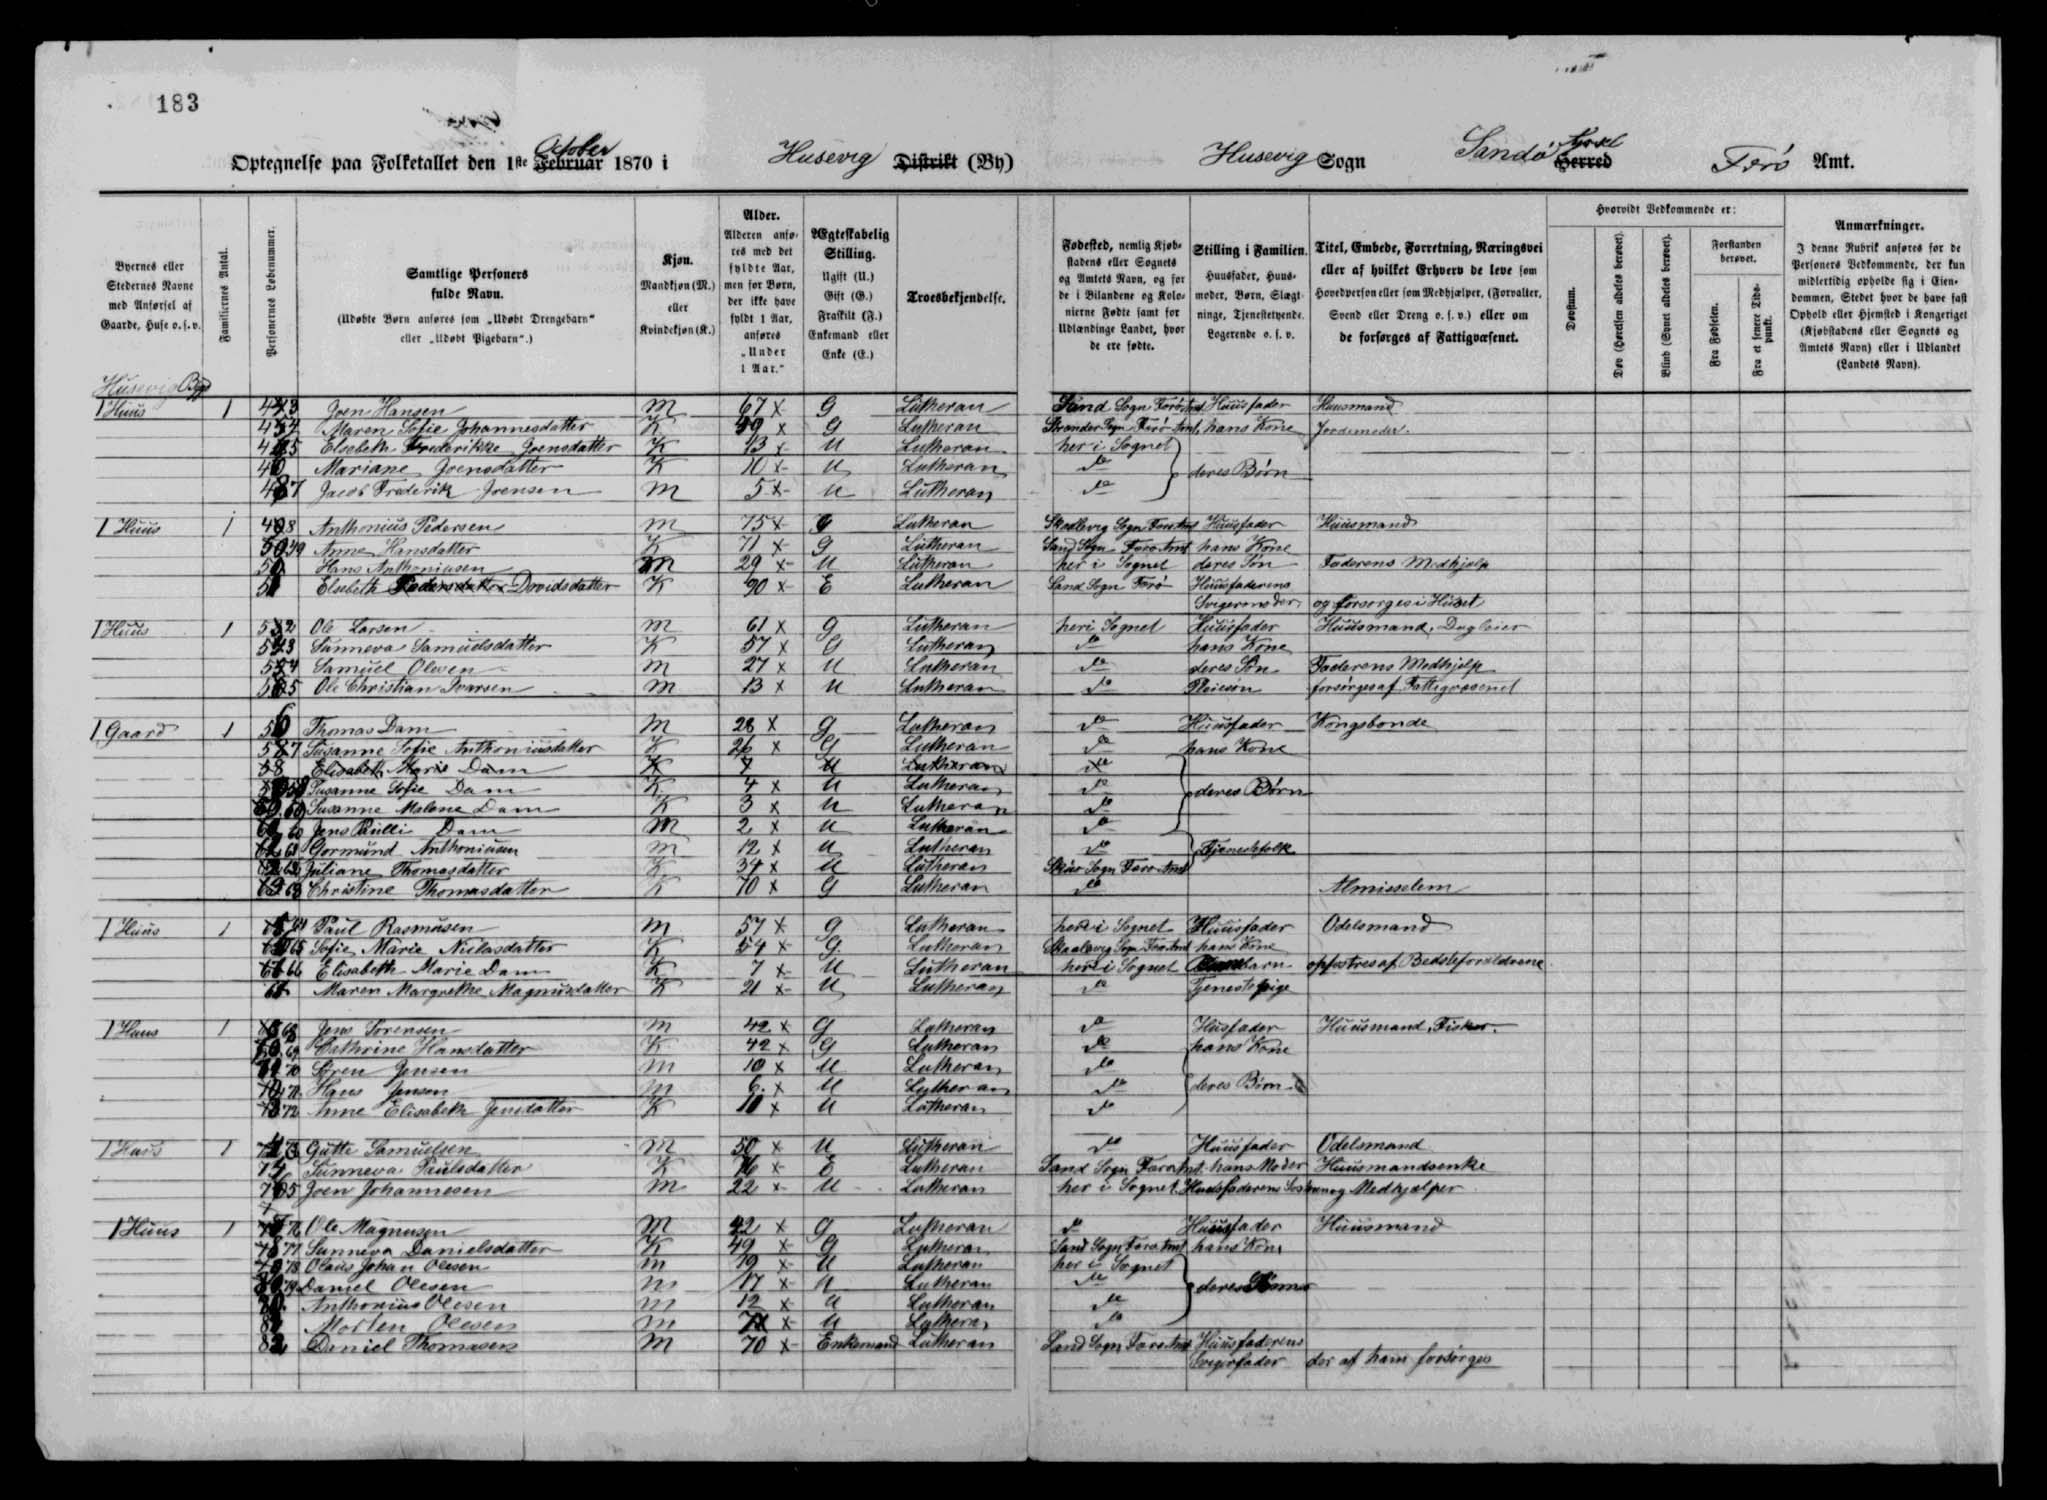 183
October
Optegnelse paa Folketallet den 1ste Februar 1870 i Husevig Distrikt (By) Husevig Sogn Sandø Syssel Herred Færø Amt.
Byernes eller Stedernes Navne med Anførsel af Gaarde, Huse o. s. v.
Familiernes Antal.
Personernes Løbenummer.
Samtlige Personers fulde Navn.
(Udøbte Børn anføres som „Udøbt Drengebarn“ eller „Udøbt Pigebarn“.)
Kjøn.
Mandkjøn (M.) eller Kvindekjøn (K.)
Alder.
Alderen anføres med det fyldte Aar, men for Børn, der ikke have fyldt 1 Aar, anføres „Under 1 Aar.“
Ægteskabelig Stilling.
Ugift (U.) Gift (G.) Fraskilt (F.) Enkemand eller Enke (E.)
Troesbekjendelse.
Fødested, nemlig Kjøbstadens eller Sognets og Amtets Navn, og for de i Bilandene og Kolonierne Fødte samt for Udlændinge Landet, hvor de ere fødte.
Stilling i Familien.
Huusfader, Huusmoder, Børn, Slægtninge, Tjenestetyende, Logerende o. s. v.
Titel, Embede, Forretning, Næringsvei eller af hvilket Erhverv de leve som Hovedperson eller som Medhjælper, (Forvalter, Svend eller Dreng o. s. v.) eller om de forsørges af Fattigvæsenet.
Hvorvidt Vedkommende er:
Døvstum.
Døv (Hørelsen aldeles berøvet).
Blind (Synet aldeles berøvet).
Forstanden berøvet.
Fra Fødselen.
Fra et senere Tidspunkt.
Anmærkninger.
I denne Rubrik anføres for de Personers Vedkommende, der kun midlertidig opholde sig i Eiendommen, Stedet hvor de have fast Ophold eller Hjemsted i Kongeriget (Kjøbstadens eller Sognets og Amtets Navn) eller i Udlandet (Landets Navn).
Husevig Bygd
1 Huus 1 Joen Hansen M 67 x G Lutheran Sand Sogn Færø Amt Huusfader Huusmand
Maren Sofie Johannesdatter K 49 x G Lutheran Strander Sogn Færø Amt, hans Kone Jordemoder.
Elsebeth Frederikke Joensdatter K 13 x U Lutheran her i Sognet
Mariane Joensdatter K 10 x U Lutheran do deres Børn
Jacob Frederik Joensen M 5 x U Lutheran do
1 Huus 1 Anthonius Pedersen M 75 x G Lutheran Sogn Færø Amt Huusfader Huusmand
49 Anne Hansdatter K 71 x G Lutheran Sand Sogn Færø Amt hans Kone
Hans Anthoniusen M 29 x U Lutheran her i Sognet deres Søn Faderens Medhjelp
Elsebeth Pedersdatter Davidsdatter K 90 x E Lutheran Sand Sogn Færø Huusfaderens
Svigermoder og forsørges i Huset
1 Huus 1 Ole Larsen M 61 x G Lutheran her i Sognet Huusfader Huusmand, Dagleier
Sunneva Samuelsdatter K 57 x G Lutheran do hans Kone
Samuel Olesen M 27 x U Lutheran do deres Søn Faderens Medhjelp
Ole Christian Ivarsen M 13 x U Lutheran do Pleiesøn forsørges af Fattigvæsenet
1 Gaard 1 56 Thomas Dam M 28 x G Lutheran do Huusfader Kongsbonde
57 Susanne Sofie Anthoniusdatter K 26 x G Lutheran do hans Kone
58 Elisabeth Marie Dam K 7 U Lutheran do
58 Susanne Sofie Dam K 4 x U Lutheran do deres Børn
59 Susanne Malene Dam K 3 x U Lutheran do
60 Jens Paulli Dam M 2 x U Lutheran do
61 Gormund Anthoniusen M 12 x U Lutheran do Tjenestefolk
62 Juliane Thomasdatter K 34 x U Lutheran Sogn Færø Amt
63 Christine Thomasdatter K 70 x G Lutheran do Almisselem
1 Huus 1 64 Paul Rasmusen M 57 x G Lutheran her i Sognet Huusfader Odelsmand
65 Sofie Marie Niclasdatter K 54 x G Lutheran Sogn Færø Amt hans Kone
66 Elisabeth Marie Dam K 7 x U Lutheran her i Sognet opfostres af Bedsteforældrene
67 Maren Margrethe Magnusdatter K 21 x U Lutheran do Tjenestepige
1 Huus 1 68 Jens Sørensen M 42 x G Lutheran do Husfader Huusmand, Fisker.
69 Cathrine Hansdatter K 42 x G Lutheran do hans Kone
70 Søren Jensen M 10 x U Lutheran do
71 Hans Jensen M 6 x U Lutheran do deres Børn
72 Anne Elisabeth Jensdatter K 10 x U Lutheran do
1 Huus 1 73 Gutte Samuelsen M 50 x U Lutheran do Huusfader Odelsmand
74 Sunneva Paulsdatter K 76 x E Lutheran Sand Sogn Færø Amt. hans Moder Huusmandsenke
75 Joen Johannesen M 22 x U Lutheran her i Sognet. Huusfaderens og Medhjælper
1 Huus 1 76 Ole Magnusen M 42 x G Lutheran do Huusfader Huusmand
77 Sunneva Danielsdatter K 49 x G Lutheran Sand Sogn Færø Amt hans Kone
78 Olaus Johan Olesen M 19 x U Lutheran her i Sognet
79 Daniel Olesen M 17 x U Lutheran do deres Sønner
80 Anthonius Olesen M 12 x U Lutheran do
81 Morten Olesen M 7 x U Lutheran do
82 Daniel Thomasen M 70 x Enkemand Lutheran Sand Sogn Færø Amt Huusfaderens
Svigerfader der af ham forsørges